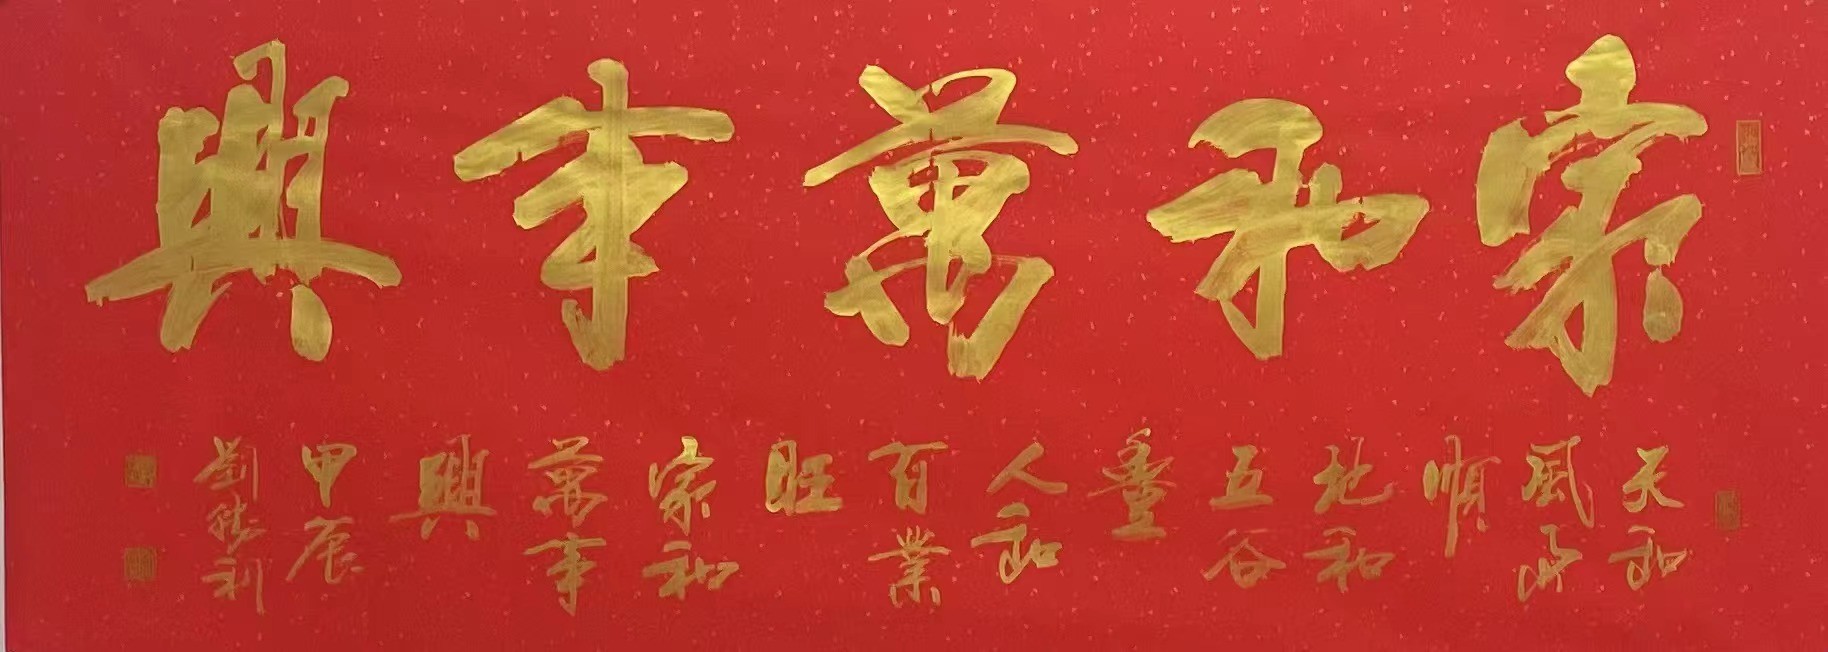 家和萬事興
天和
風雨
順
地和
五谷
豊
人和
百業
旺
家和
萬事
興
甲辰
劉勝利